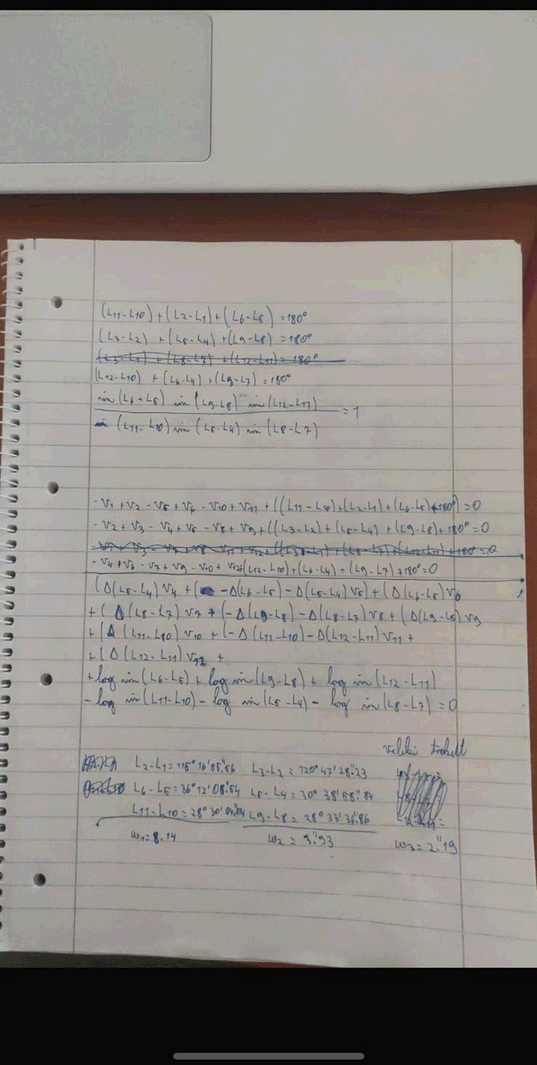 (L11-L10)+(L2-L1)+(L6-L5)=180°
(L3-L2)+(L5-L4)+(L9-L8)=180°
(L3-L1)+(L8-L7)+(L12-L11)=180°
(L12-L10)+(L6-L4)+(L9-L7)=180°
sin(L6-L5) sin(L9-L8) sin(L12-L11)
=1
sin(L11-L10) sin(L5-L4) sin(L8-L7)
-V1+V2-V5+V6-V10+V11+((L11-L10)+(L2-L1)+(L6-L5)+180°)=0
-V2+V3-V4+V5-V8+V9+((L3-L2)+(L5-L4)+(L9-L8)+180°=0
-V4+V6-V7+V9-V10+V12+(L12-L10)+(L6-L4)+(L9-L7)+180°=0
(Δ(L5-L4)V4+(-Δ(L6-L5)-Δ(L5-L4)V5)+(Δ(L6-L5)V6
+(Δ(L8-L7)V7+(-Δ(L9-L8)-Δ(L8-L7)V8+(Δ(L9-L8)V9
+(Δ(L11-L10)V10+(-Δ(L11-L10)-Δ(L12-L11)V11+
+(Δ(L12-L11)V12+
+log sin(L6-L5)+log sin(L9-L8)+log sin(L12-L11)
-log sin(L11-L10)-log sin(L5-L4)-log sin(L8-L7)=0
veliki trokut
L2-L1=115°16'05."56 L3-L2=120°47'28."23
L6-L5=36°12'08."54 L5-L4=30°38'58."84
L11-L10=28°30' L9-L8=28°33'36."86
W1=8.14 W2=3."93 W3=2."19